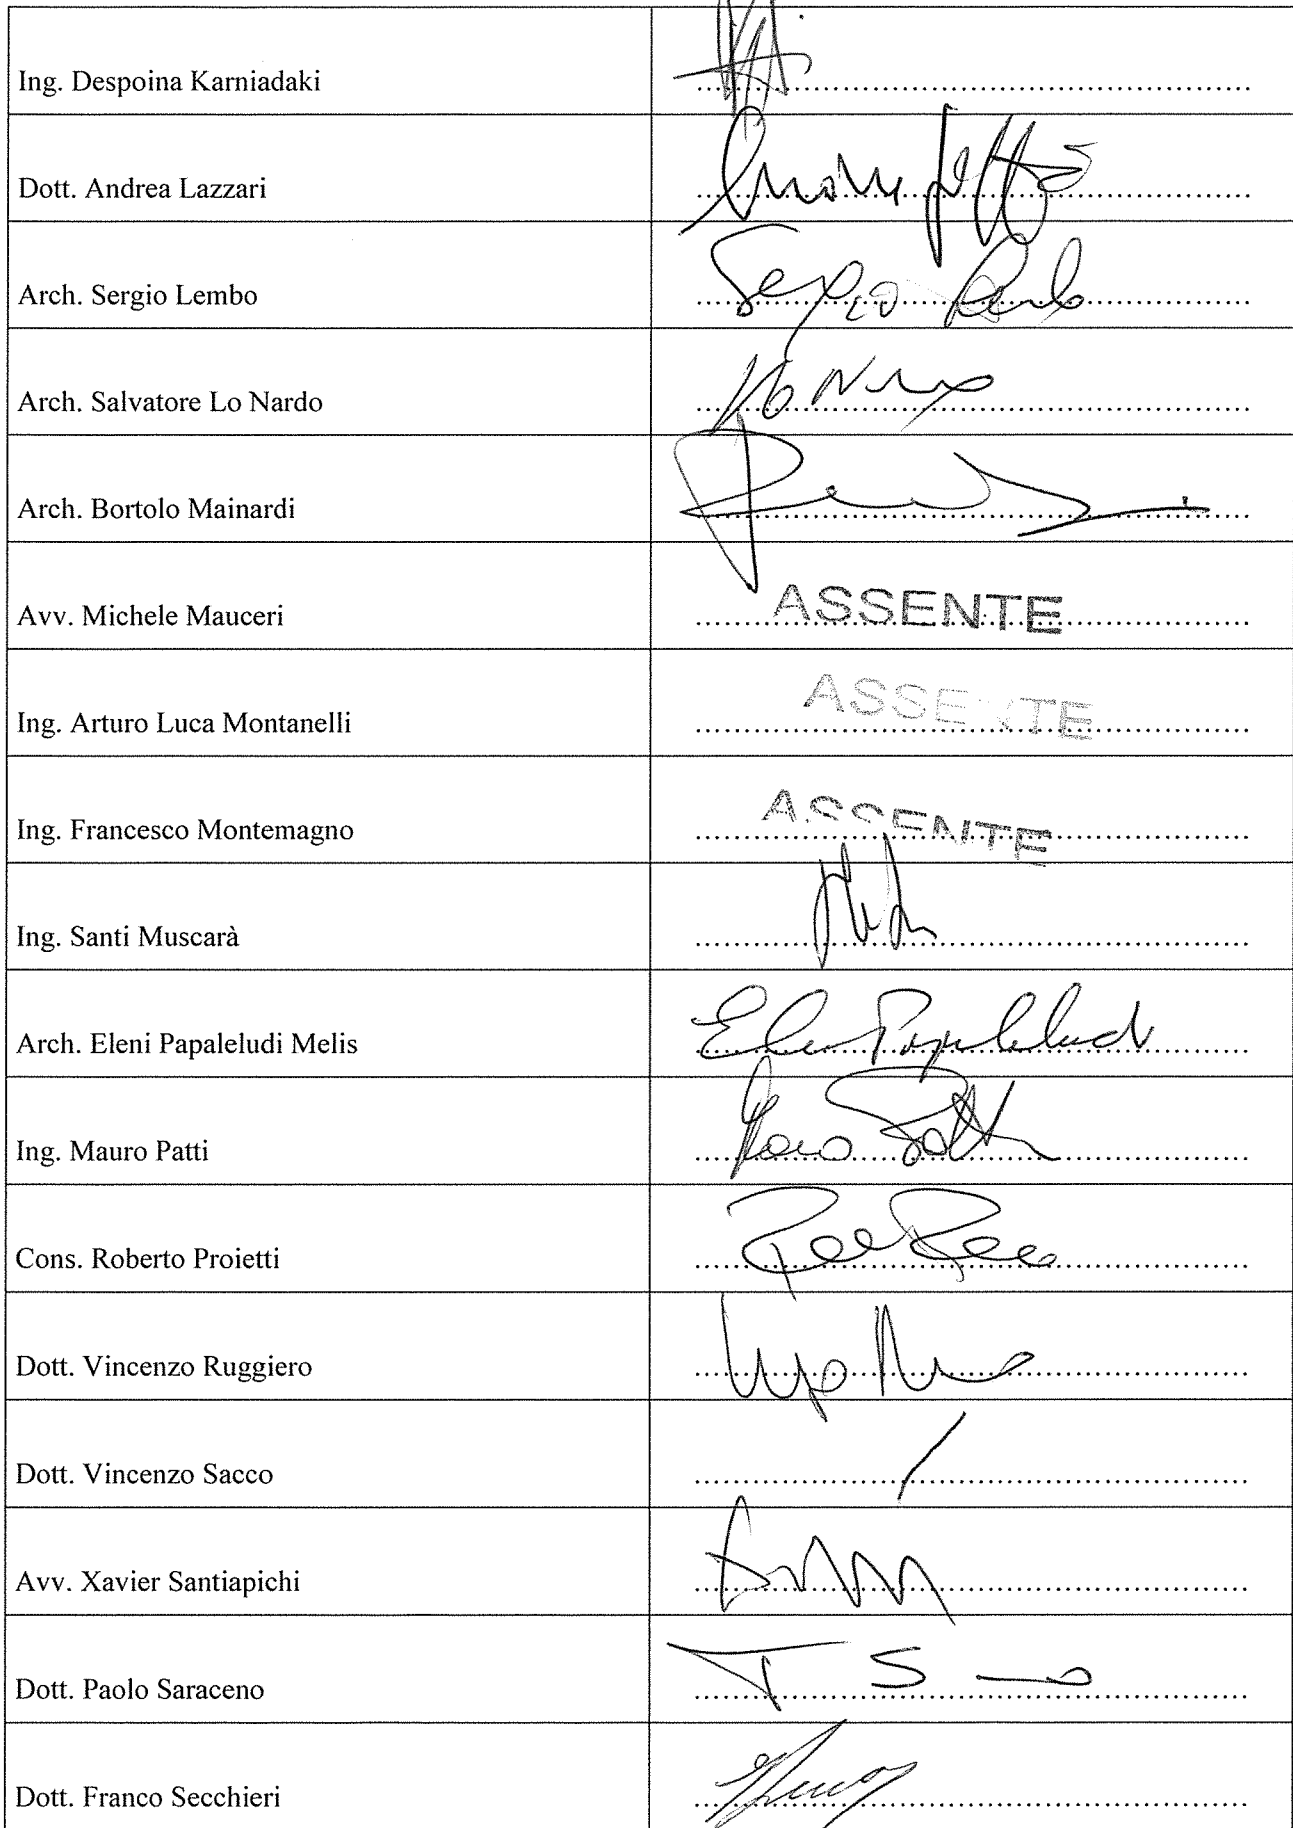 Ing. Despoina Karniadaki ........................................
Dott. Andrea Lazzari ........................................
Arch. Sergio Lembo ........................................ Sergio Lembo
Arch. Salvatore Lo Nardo ........................................
Arch. Bortolo Mainardi ........................................
Avv. Michele Mauceri ........................................ ASSENTE
Ing. Arturo Luca Montanelli ........................................ ASSENTE
Ing. Francesco Montemagno ........................................ ASSENTE
Ing. Santi Muscarà ........................................
Arch. Eleni Papaleludi Melis ........................................ Eleni Papaleludi
Ing. Mauro Patti ........................................ Mauro Patti
Cons. Roberto Proietti ........................................
Dott. Vincenzo Ruggiero ........................................
Dott. Vincenzo Sacco ........................................ /
Avv. Xavier Santiapichi ........................................
Dott. Paolo Saraceno ........................................
Dott. Franco Secchieri ........................................